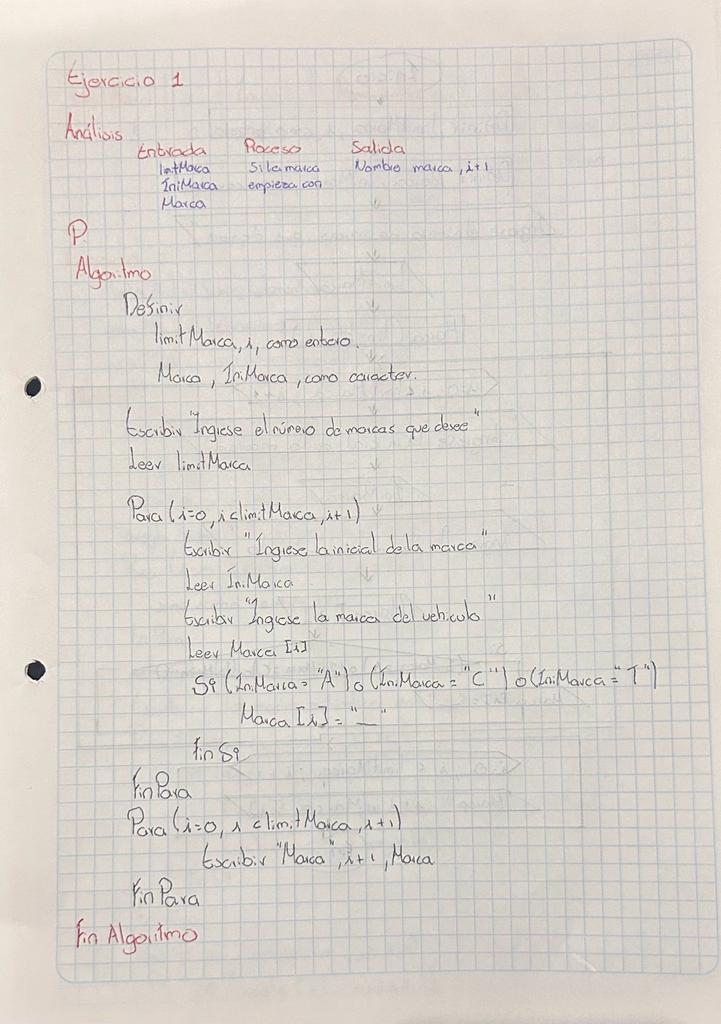 Ejercicio 1
Análisis
Entrada Proceso Salida
limtMarca Si la marca Nombre marca, i+1
IniMarca empieza con
Marca
P.
Algoritmo
Definir
limitMarca, i, como entero.
Marca, IniMarca, como caracter.
Escribir "Ingrese el número de marcas que desee"
Leer limitMarca
Para (i=0, i<limitMarca, i+1)
Escribir "Ingrese la inicial de la marca"
Leer IniMarca
Escribir "Ingrese la marca del vehiculo"
Leer Marca [i]
Si (IniMarca = "A") o (IniMarca = "C") o (IniMarca = "T")
Marca [i] = "_"
Fin Si
Fin Para
Para (i=0, i <limitMarca, i+1)
Escribir "Marca", i+1, Marca
Fin Para
Fin Algoritmo